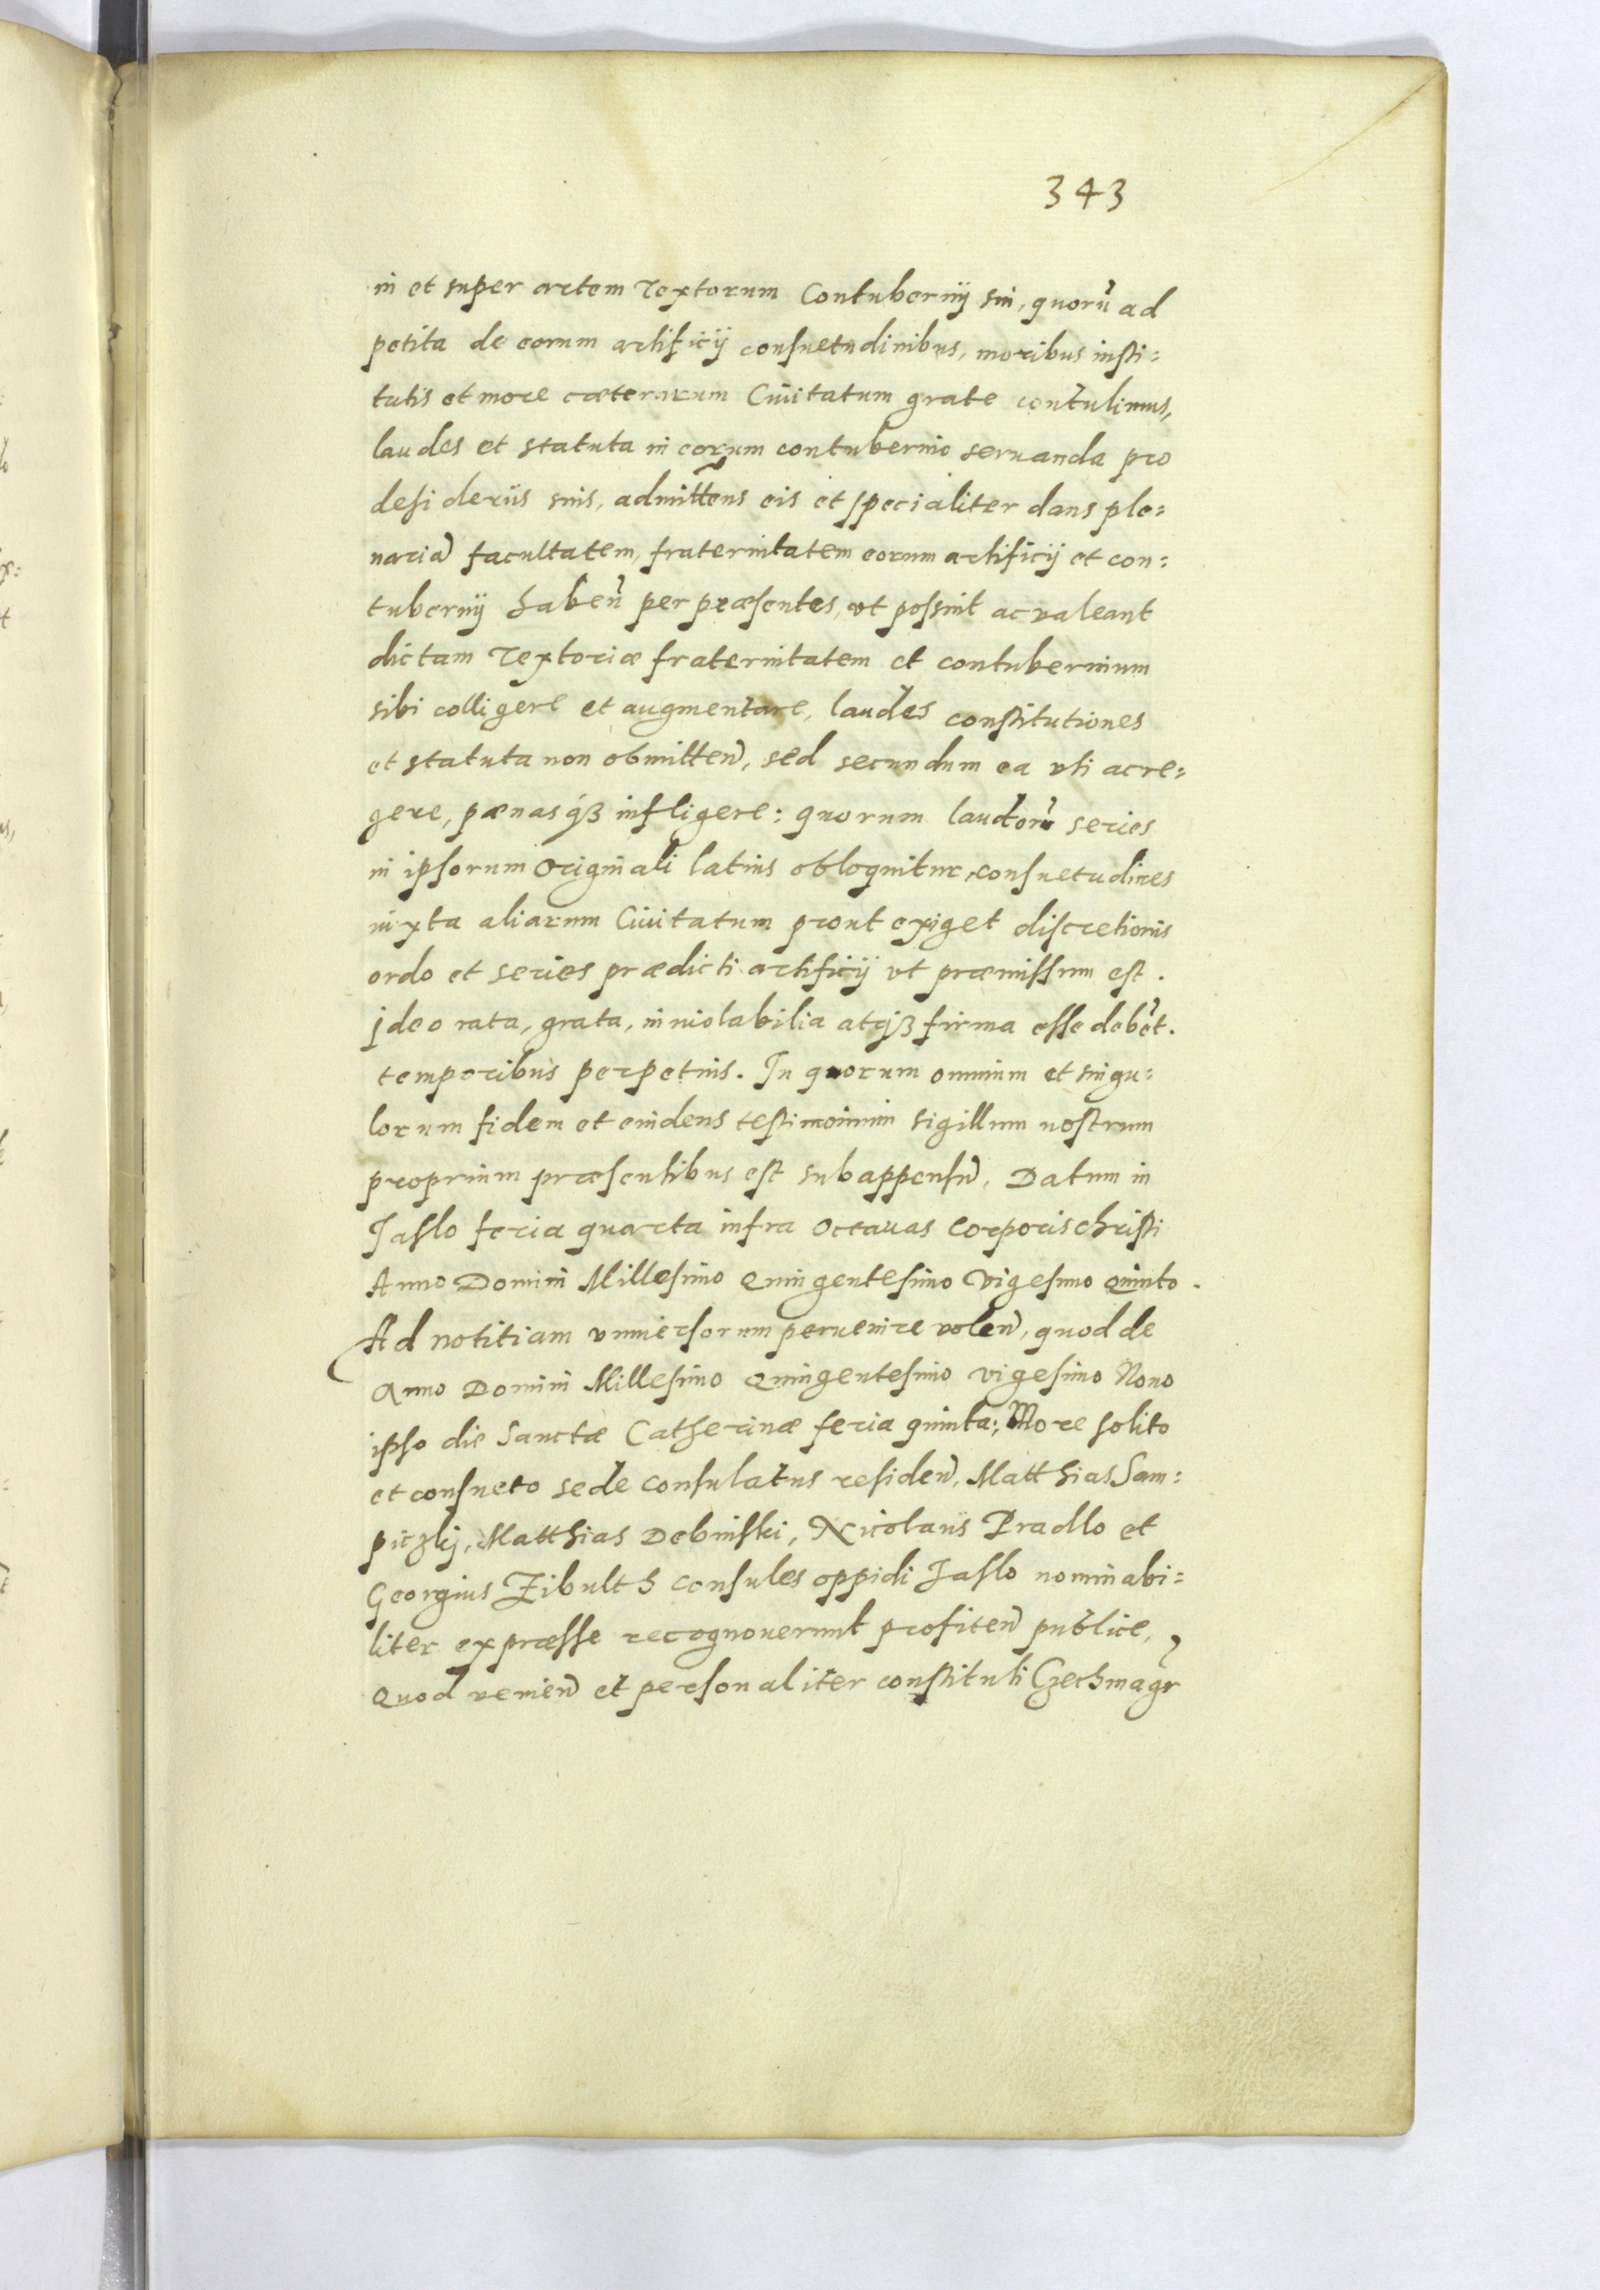 343
in et super artem Textorum Contubernij sui, quorũ ad
petita de eorum artificij consuetudinibus, moribus insti=
tutis et more cæterarum Ciuitatum grate contulimus,
laudes et statuta in eorum contubernio seruanda pro
desiderijs suis, admittens eis et specialiter dans ple=
nariã facultatem, fraternitatem eorum artificij et con=
tubernij habeñ per præsentes, vt possint ac valeant
dictam Textoriæ fraternitatem et contubernium
sibi colligere et augmentare, laudes constitutiones
et statuta non obmitteñ, sed secundum ea vti ac re=
gere, pænasqȝ infligere: quorum laudorũ series
in ipsorum Originali latius obloquitur, consuetudines
iuxta aliarum Ciuitatum prout exiget discretionis
ordo et series prædicti artificij vt præmissum est.
Ideo rata, grata, inuiolabilia atqȝ firma esse debẽt.
temporibus perpetuis. In quorum omnium et singu=
lorum fidem et euidens testimonium sigillum nostrum
proprium præsentibus est subappensũ. Datum in
Jaslo feria quarta infra Octauas Corporis Christi
Anno Domini Millesimo Quingentesimo Vigesimo Quinto.
Ad notitiam vniuersorum peruenire voleñ, quod de
Anno Domini Millesimo Quingentesimo vigesimo Nono
ipso die Sanctæ Catherinæ feria quinta; More solito
et consueto sede consulatus resideñ, Matthias Sam=
piczkj, Matthias Debinski, Nicolaus Pradlo et
Georgius Zibulth consules oppidi Jaslo nominabi=
liter expræsse recognouerunt profiteñ publice,
Quod venieñ et personaliter constituti Czechmagr̃